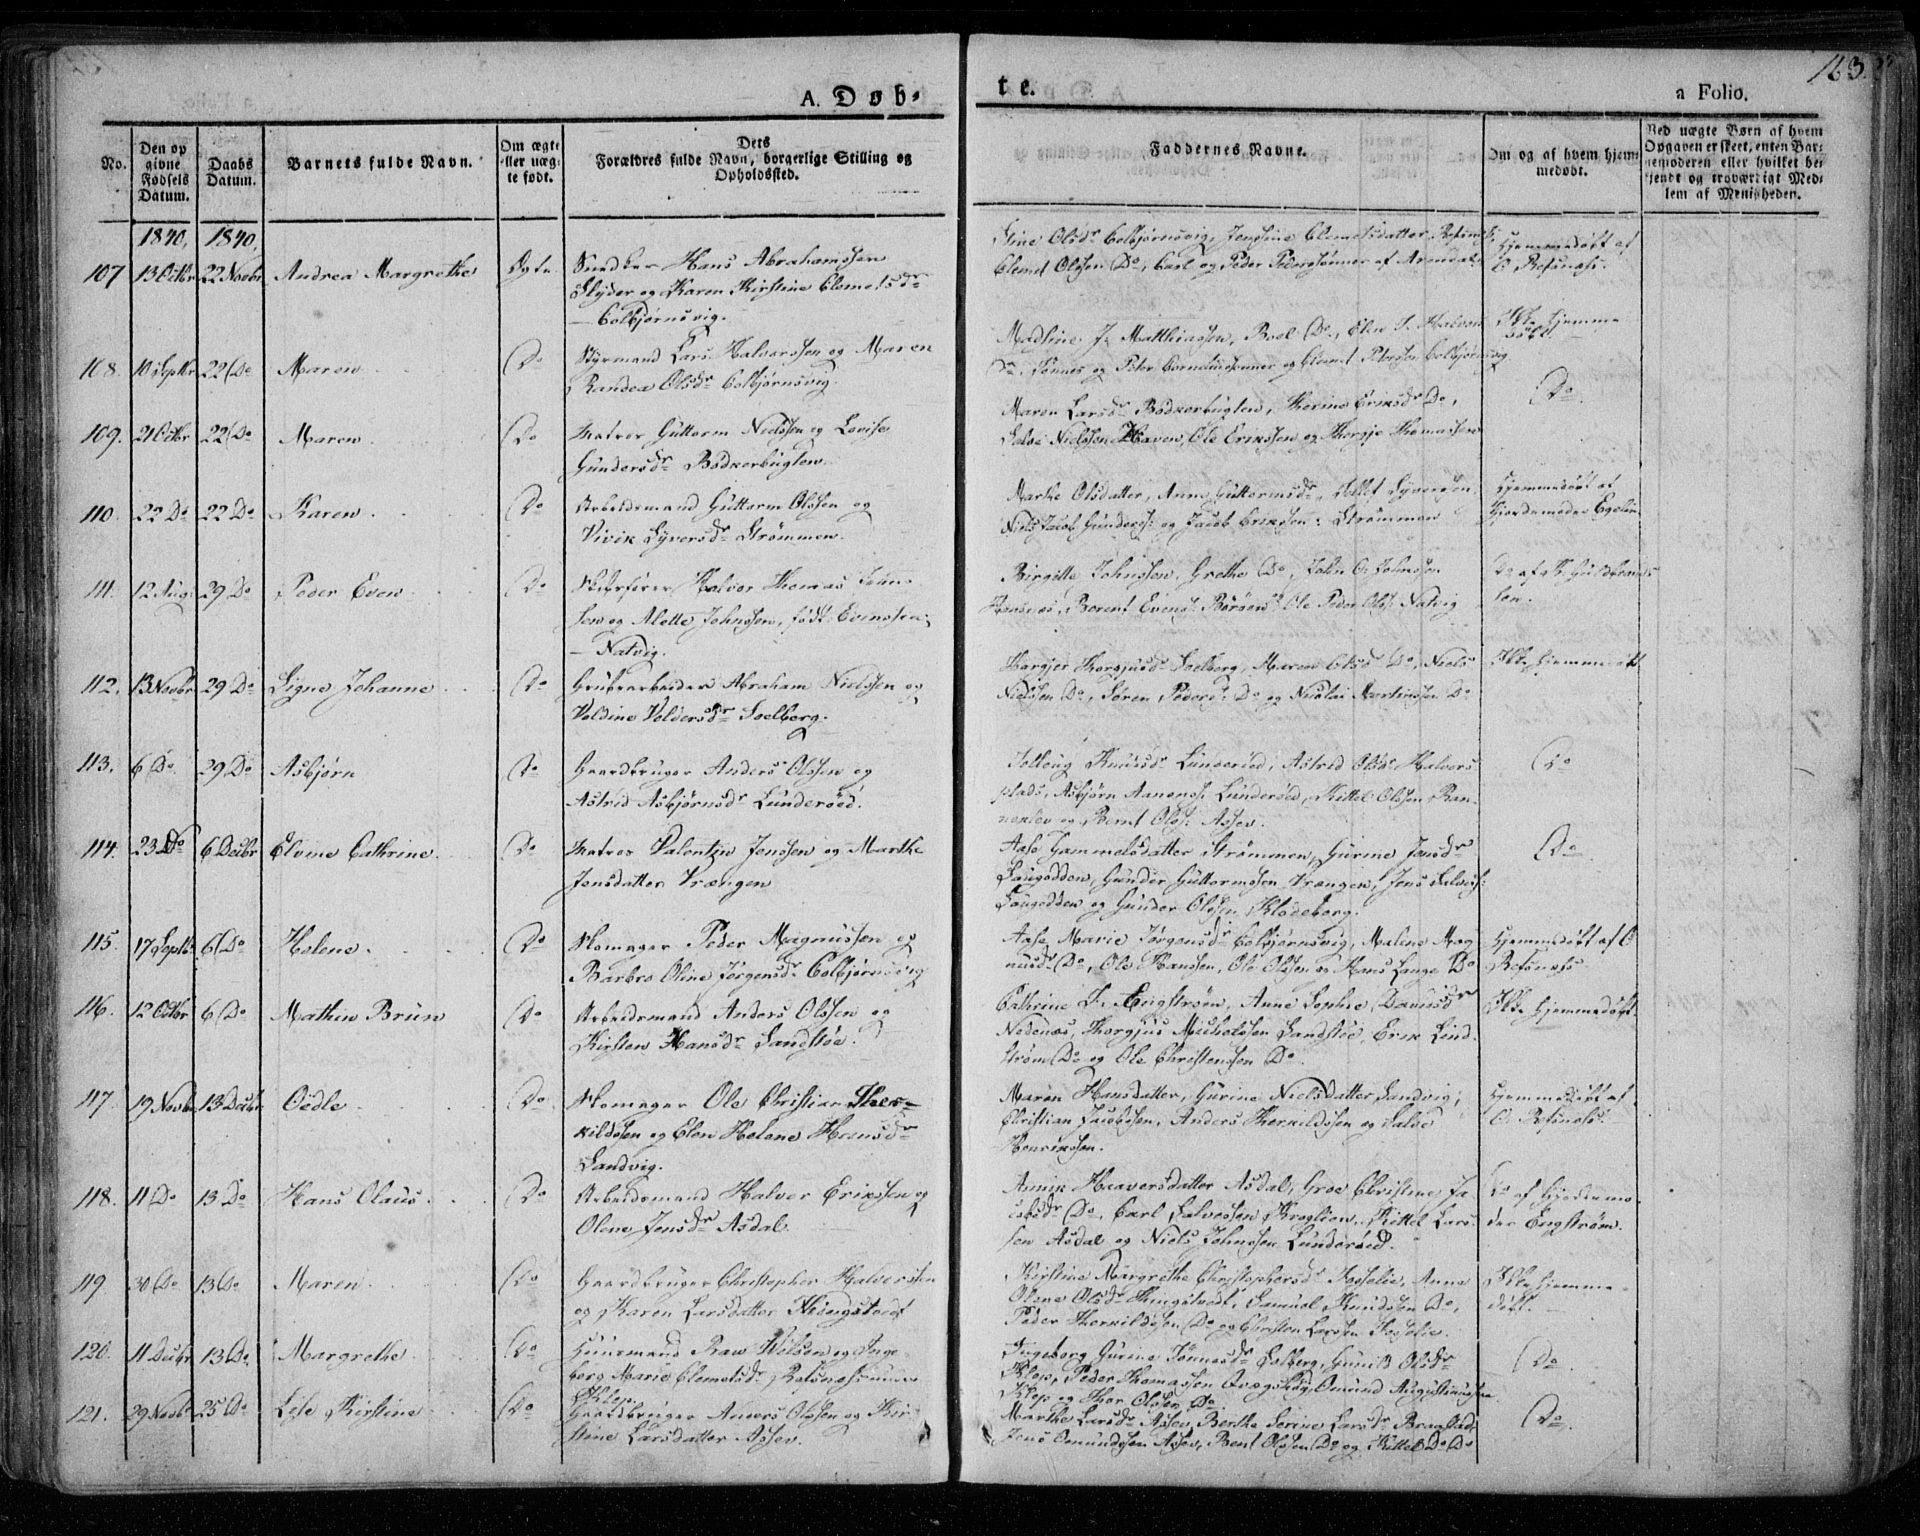 A. Døb-
te.
163.
a Folio.
No.
Den op
givne
Fødsels
Datum.
Daabs
Datum.
Barnets fulde Navn.
Om ægte
eller uæg-
te født.
Dets
Forældres fulde Navn, borgerlige Stilling og
Opholdssted.
Faddernes Navne.
Om og af hvem hjem-
medøbt.
Ved uægte Børn af hvem
Opgaven er skeet, enten Bar-
nemoderen eller hvilket be-
kjendt og troværdigt Med-
lem af Menigheden.
1840, 1840,
107 13 Octbr 22 Novbr Andrea Margrethe Ægte Snedker Hans Abrahamssen
Slyder og Karen Kirstine Clemetsdr
Colbjørnsvig.
Stine Olsdr Colbjørnsvig, Jensine Clemetsdatter
Clemet Olssen Do, Carl og Peder Pederssønner af Arendal
Hjemmedøbt af
O. Refsnæs.
108. 10 Septbr 22 Do Maren Do Styrmand Lars Halvorssen og Maren
Randea Olsdr Colbjørnsvig.
Madsine J. Matthiassen, Boel Do, Elen J. Halvors
Do, Tønnes og Peter Corneliussønner og Clemet Peterssen Colbjørnsvig
Ikke hjemme-
døbt.
109. 21 Octbr 22 Do Maren Do Matros Guttorm Nielssen og Lovise
Gundersdr Bødkerbugten.
Maren Larsdr Bødkerbugten, Therine Eriksdr Do,
Salve Nielssen Haven, Ole Erikssen og Thorgje Thomassen
Do
110. 22 Do 22 Do Karen Do Arbeidsmand Guttorm Olssen og
Vivik Syversdr Strømmen.
Marthe Olsdatter, Anne Guttormsdr, Tellef Syverssen,
Niels Jacob Gunders: og Jacob Erikssen: Strømmen
Hjemmedøbt af
Gjordemoder
111. 12 Aug: 29 Do Peder Even Do Skibsfører Halvor Thomas John-
sen og Alette Johnssen, født Evenssen,
Natvig.
Birgitte Johnssen, Grethe Do, John O. Johnssen
Berent Evens: Ole Peder Ols: Natvig
Do af
sen.
112. 13 Novbr 29 Do Signe Johanne Do Grubearbeider Abraham Nielssen og
Voldine Voldersdr Solberg.
Thorgjusdr Solberg, Maren Olsdr Do, Niels
Nielssen Do, Søren Peders: Do og Nicolai Martinssen Do
Ikke hjemmedøbt
113. 6 Do 29 Do Asbjørn Do Gaardbruger Anders Olssen og
Astrid Asbjørnsdr Lunderød.
Knudsdr Lunderød, Astrid Olsdr Halvors
plads, Asbjørn Aanens: Lunderød, Kittel Olssen Ran-
neklev og Bernt Ols: Assev.
Do
114. 23 Do 6 Decbr Elvine Cathrine Do Matros Valentin Jenssen og Marthe
Jensdatter Vrængen
Aase Gammelsdatter Strømmen, Gurine Jensdr
Gunder Guttormssen Vrængen, Jens Salves:
og Gunder Olssen Klodeborg.
Do
115. 17 Septbr 6 Do Helene Do Skomager Peder Magnussen og
Barbro Oline Jørgensdr Colbjørnsvig
Aase Marie Jørgensdr Colbjørnsvig, Malene Mag-
nusdr Do, Ole Hanssen, Ole Olssen og Hans Lange Do
Hjemmedøbt af O
Refsnæs
116. 12 Octbr 6 Do Mathin Brun Do Arbeidsmand Anders Olssen og
Kirsten Hansdr Sandstøe.
Cathrine Engstrøm, Anne Sophie Davidsdr
Nedenæs, Thorgjus Michelssen Sandstøe, Erik Lind-
strøm Do og Ole Christenssen Do
Ikke hjemmedøbt
117. 19 Novbr 13 Decbr Oedle Do Skomager Ole Christian Ther-
kildssen og Elen Helene Hansdr
Sandvig.
Maren Hansdatter, Gurine Nielsdatter Sandvig,
Christian Jacobssen, Anders Therkildssen og Salve
Henrikssen.
Hjemmedøbt af
O. Refsnæs.
118. 11 Do 13 Do Hans Olaus Do Arbeidsmand Halvor Erikssen og
Olene Jensdr Asdal.
Haaversdatter Asdal, Groe Christine Ja-
cobsdr Do, Carl Salvessen Kittel Lars-
sen Asdal og Niels Johnssen Lunderød.
Do af Gjordemo-
der Engstrøm.
119. 30 Do 13 Do Maren Do Gaardbruger Christopher Halvorssen
og Karen Larsdatter Thingstvedt
Kirstine Margrethe Christophersdr Fosselie, Anne
Olene Olsdr Thingstvedt, Samuel Knudssen Do,
Peder Therkildssen Do og Christen Larssen Fosselie.
Ikke hjemme-
døbt.
120. 11 Decbr 13 Do Margrethe Do Huusmand og Inge-
berg Marie Clemetsdr
Klep
Ingeborg Gurine Tønnesdr Solberg, Gunild Olsdr
Klep, Peder Thomassen Omund Augustinussen
Klep og Thor Olssen Do
Do
121. 29 Novbr 25 Do Lise Kirstine Do Gaardbruger Anders Olssen og Kir-
stine Larsdatter Assev.
Marthe Larsdr Assev, Berthe Serine Larsdr
Jens Omundssen Assev, Bent Olssen Do og Kittel Do Do
Do